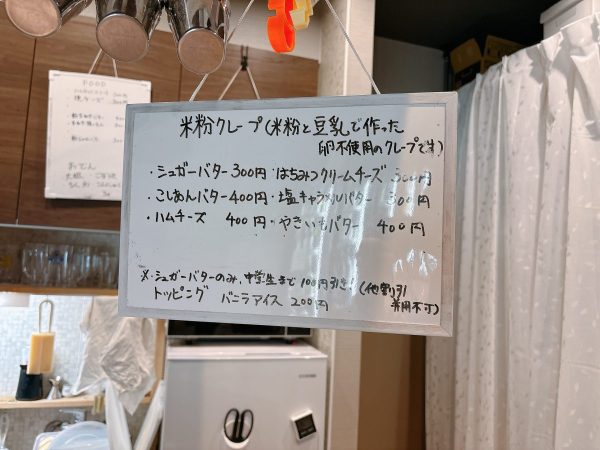 米粉クレープ(米粉と豆乳で作った
卵不使用のクレープです)
・シュガーバター 300円 ・はちみつクリームチーズ 500円
・こしあんバター 400円 ・塩キャラメルバター 500円
・ハムチーズ 400円 ・やきいもバター 400円
※シュガーバターのみ、中学生まで100円引き(他割引
併用不可)
トッピング バニラアイス 200円
FOOD
おでん